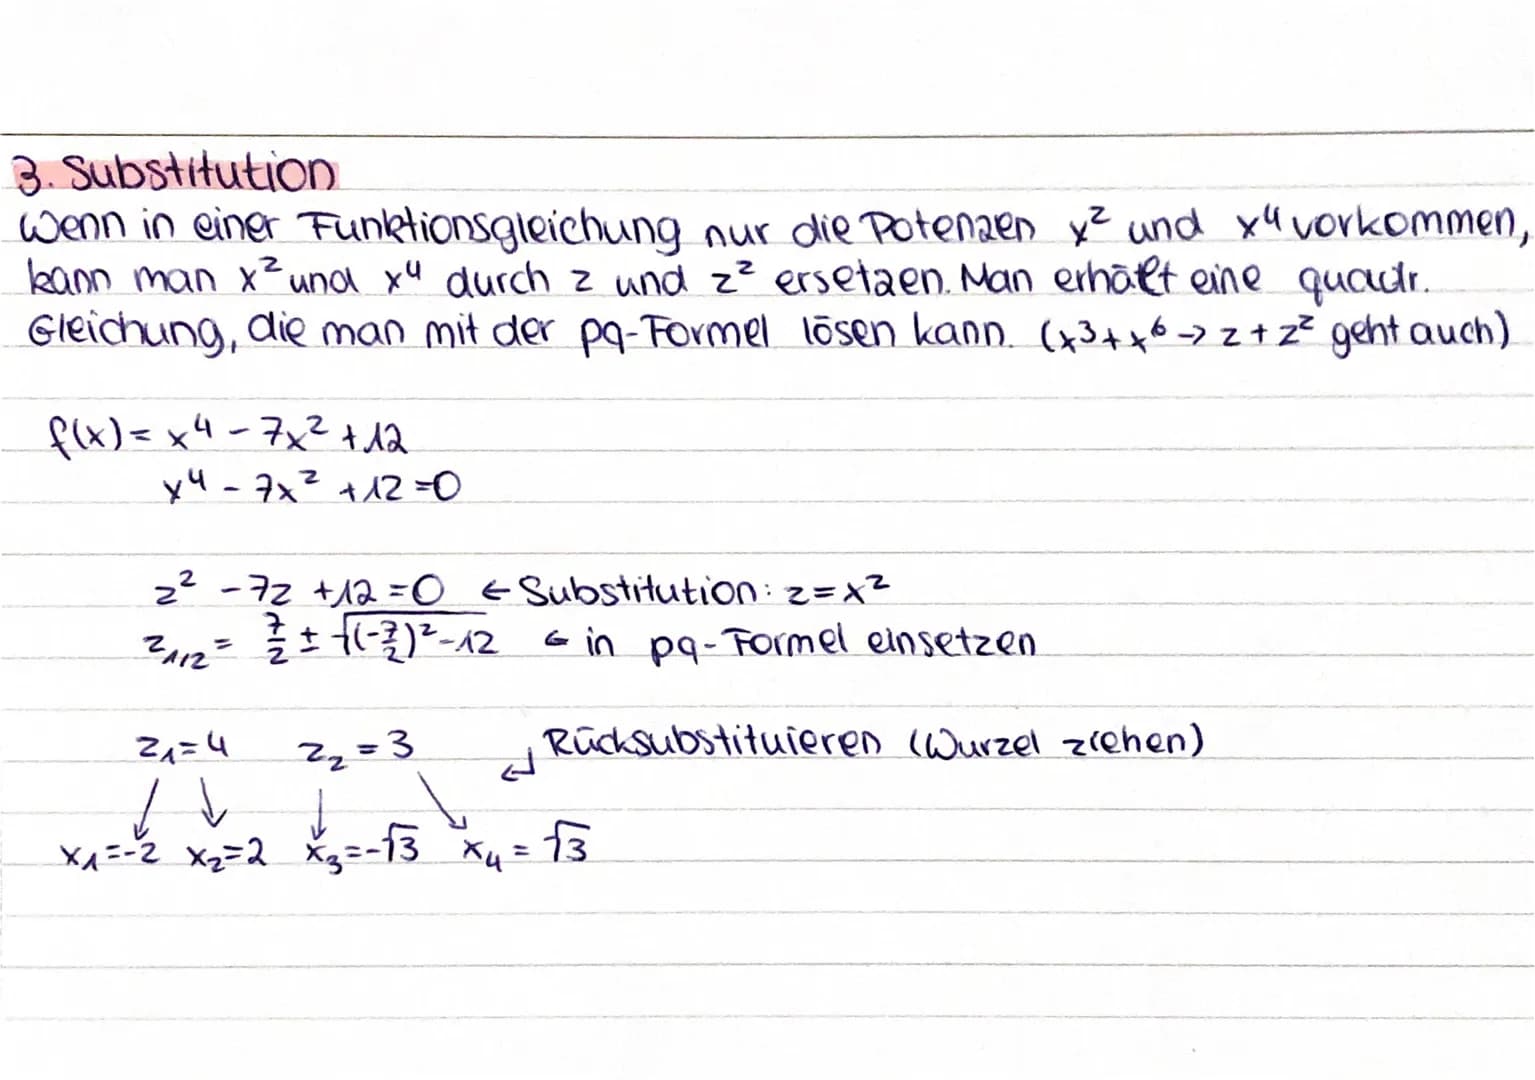 3. Substitution
Wenn in einer Funktionsgleichung nur die Potenzen x² und x⁴ vorkommen,
kann man x² und x⁴ durch z und z² ersetzen. Man erhält eine quadr.
Gleichung, die man mit der pq-Formel lösen kann. (x³+x⁶→z+z² geht auch)
f(x)= x⁴-7x²+12
x⁴-7x²+12=0
z²-7z+12=0 ← Substitution: z=x²
z₁/₂= 7/2 ± √((-7/2)²-12) ← in pq-Formel einsetzen
z₁=4 z₂=3 ↵ Rücksubstituieren (Wurzel ziehen)
x₁=-2 x₂=2 x₃=-√3 x₄=√3